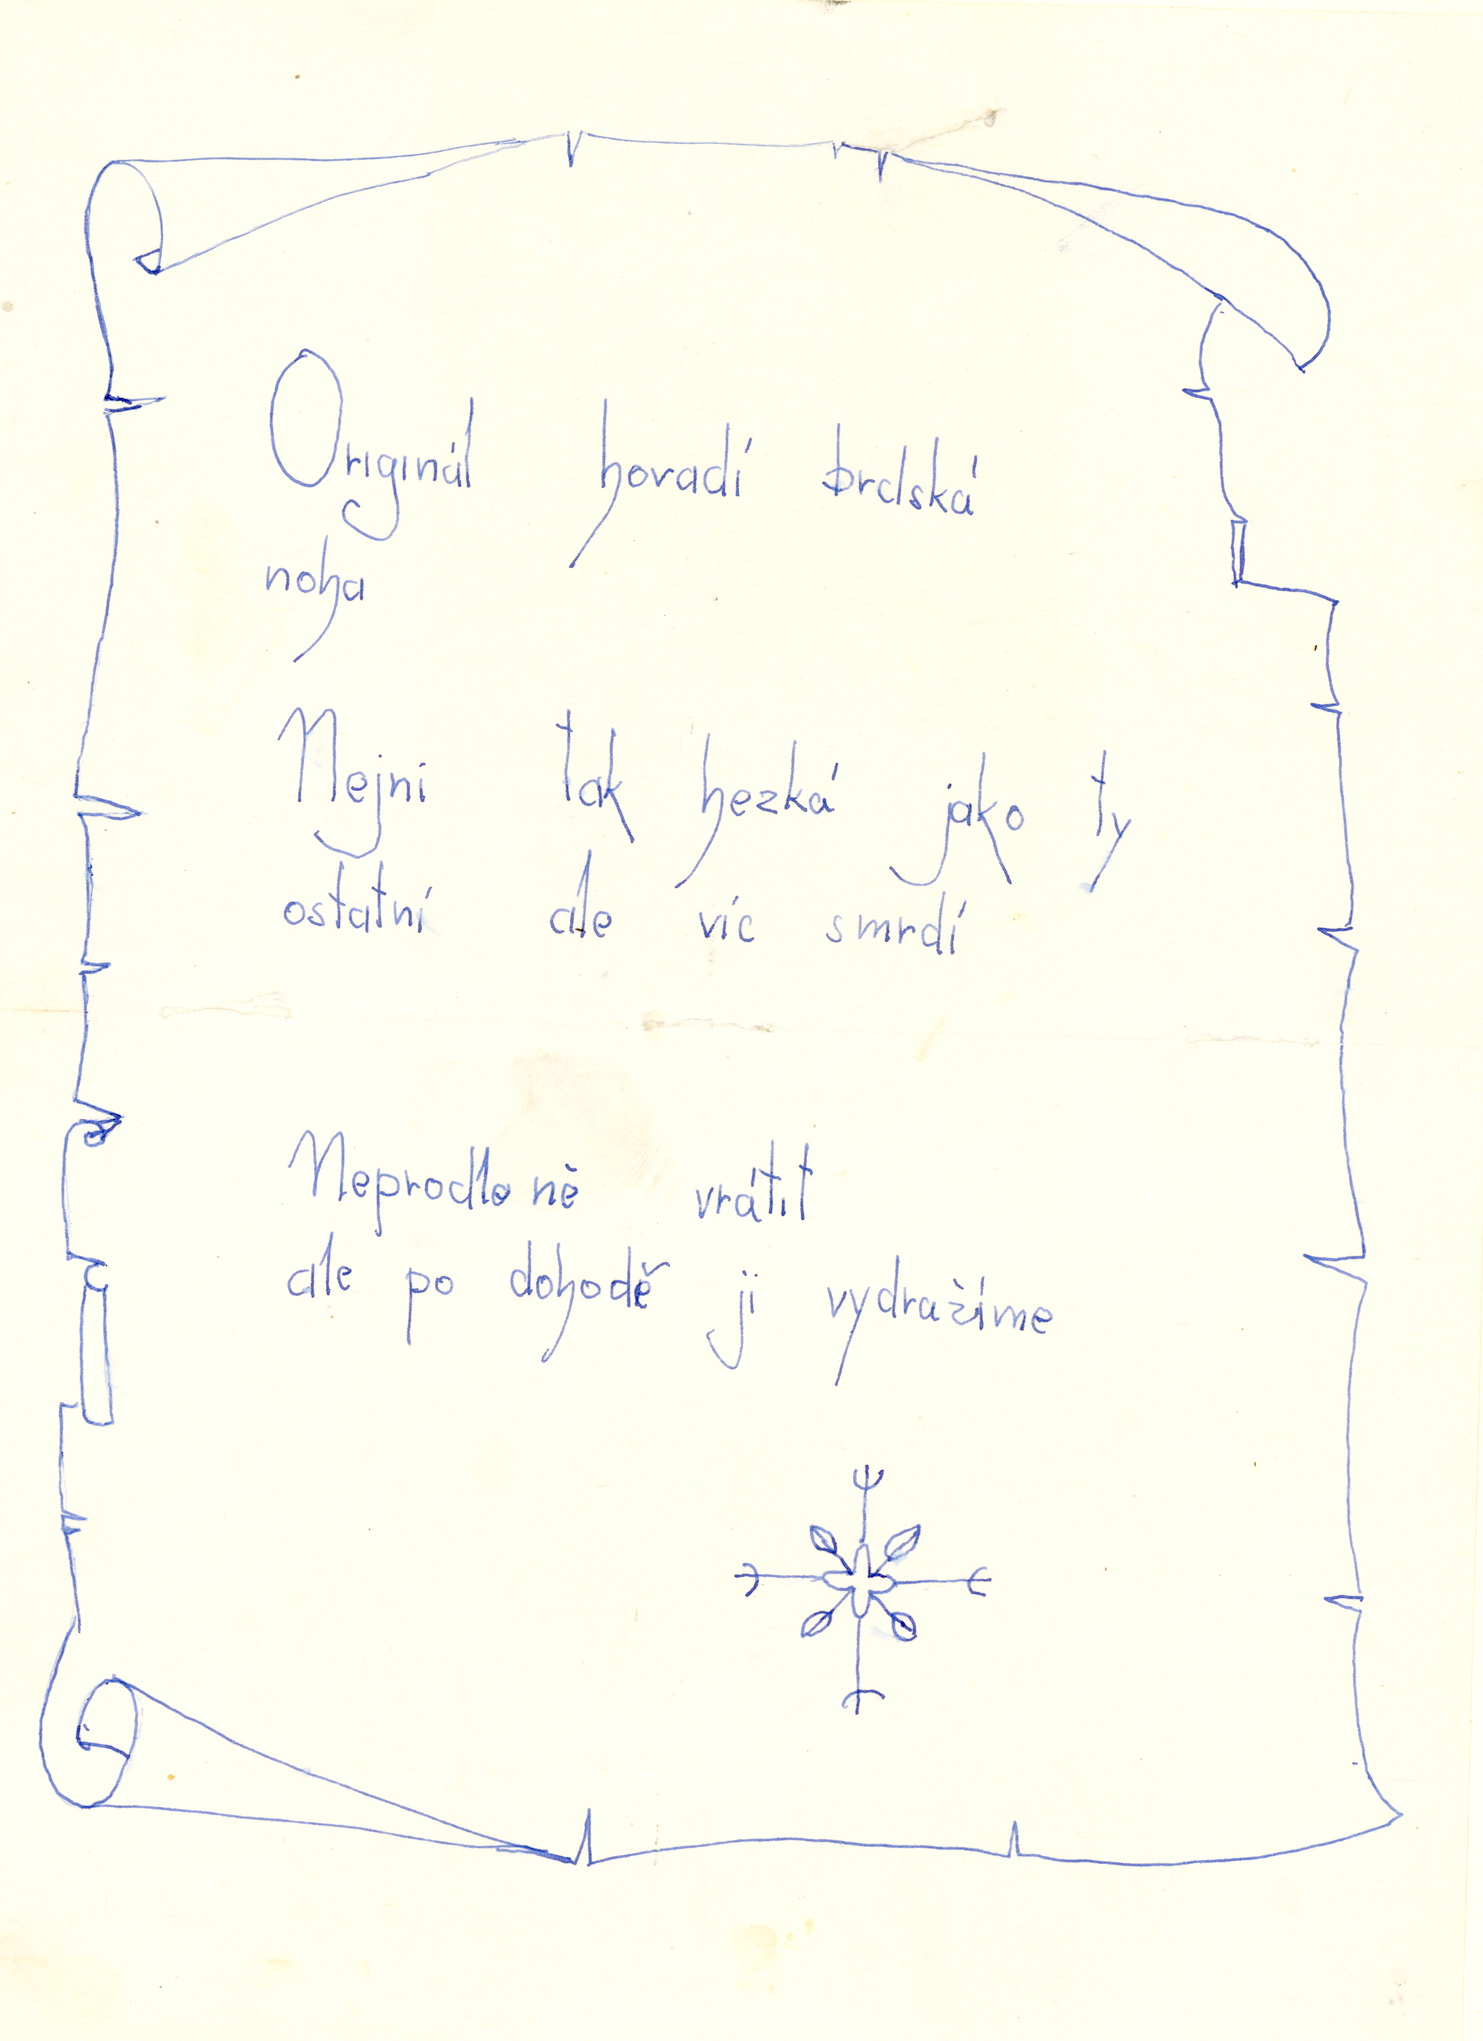 Originál hovadí brdská
noha
Nejni tak hezká jako ty
ostatní ale víc smrdí
Neprodleně vrátit
ale po dohodě ji vydražíme